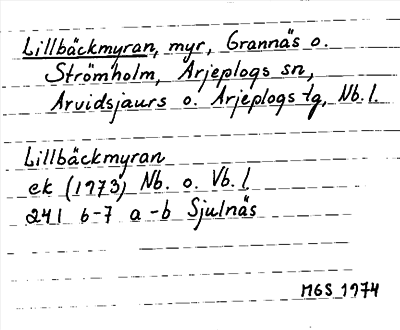 Lillbäckmyran, myr, Grannäs o.
Strömholm, Arjeplogs sn,
Arvidsjaurs o. Arjeplogs tg, Nb. l.
Lillbäckmyran
ek (1973) Nb. o. Vb. l
24I 6-7 a-b Sjulnäs
MGS 1974